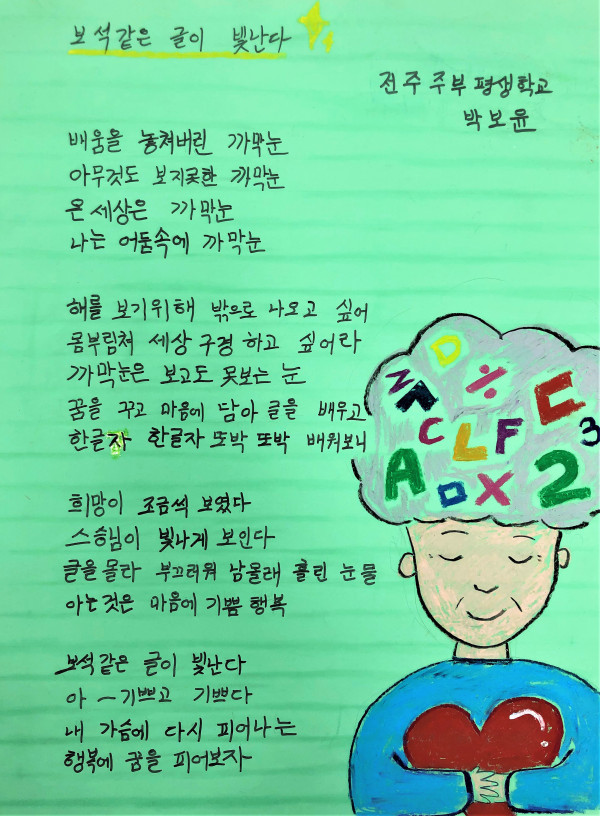 보석같은 글이 빛난다
전주 주부 평생학교
박보윤
배움을 놓쳐버린 까막눈
아무것도 보지못한 까막눈
온 세상은 까막눈
나는 어둠속에 까막눈
해를 보기위해 밖으로 나오고 싶어
몸부림쳐 세상 구경 하고 싶어라
까막눈은 보고도 못보는 눈
꿈을 꾸고 마음에 담아 글을 배우고
한글자 한글자 또박 또박 배워보니
희망이 조금씩 보였다
스승님이 빛나게 보인다
글을 몰라 부끄러워 남몰래 흘린 눈물
아는것은 마음에 기쁨 행복
보석같은 글이 빛난다
아 ― 기쁘고 기쁘다
내 가슴에 다시 피어나는
행복에 꿈을 피어보자
D
N ÷ C
C L F 3
A X 2